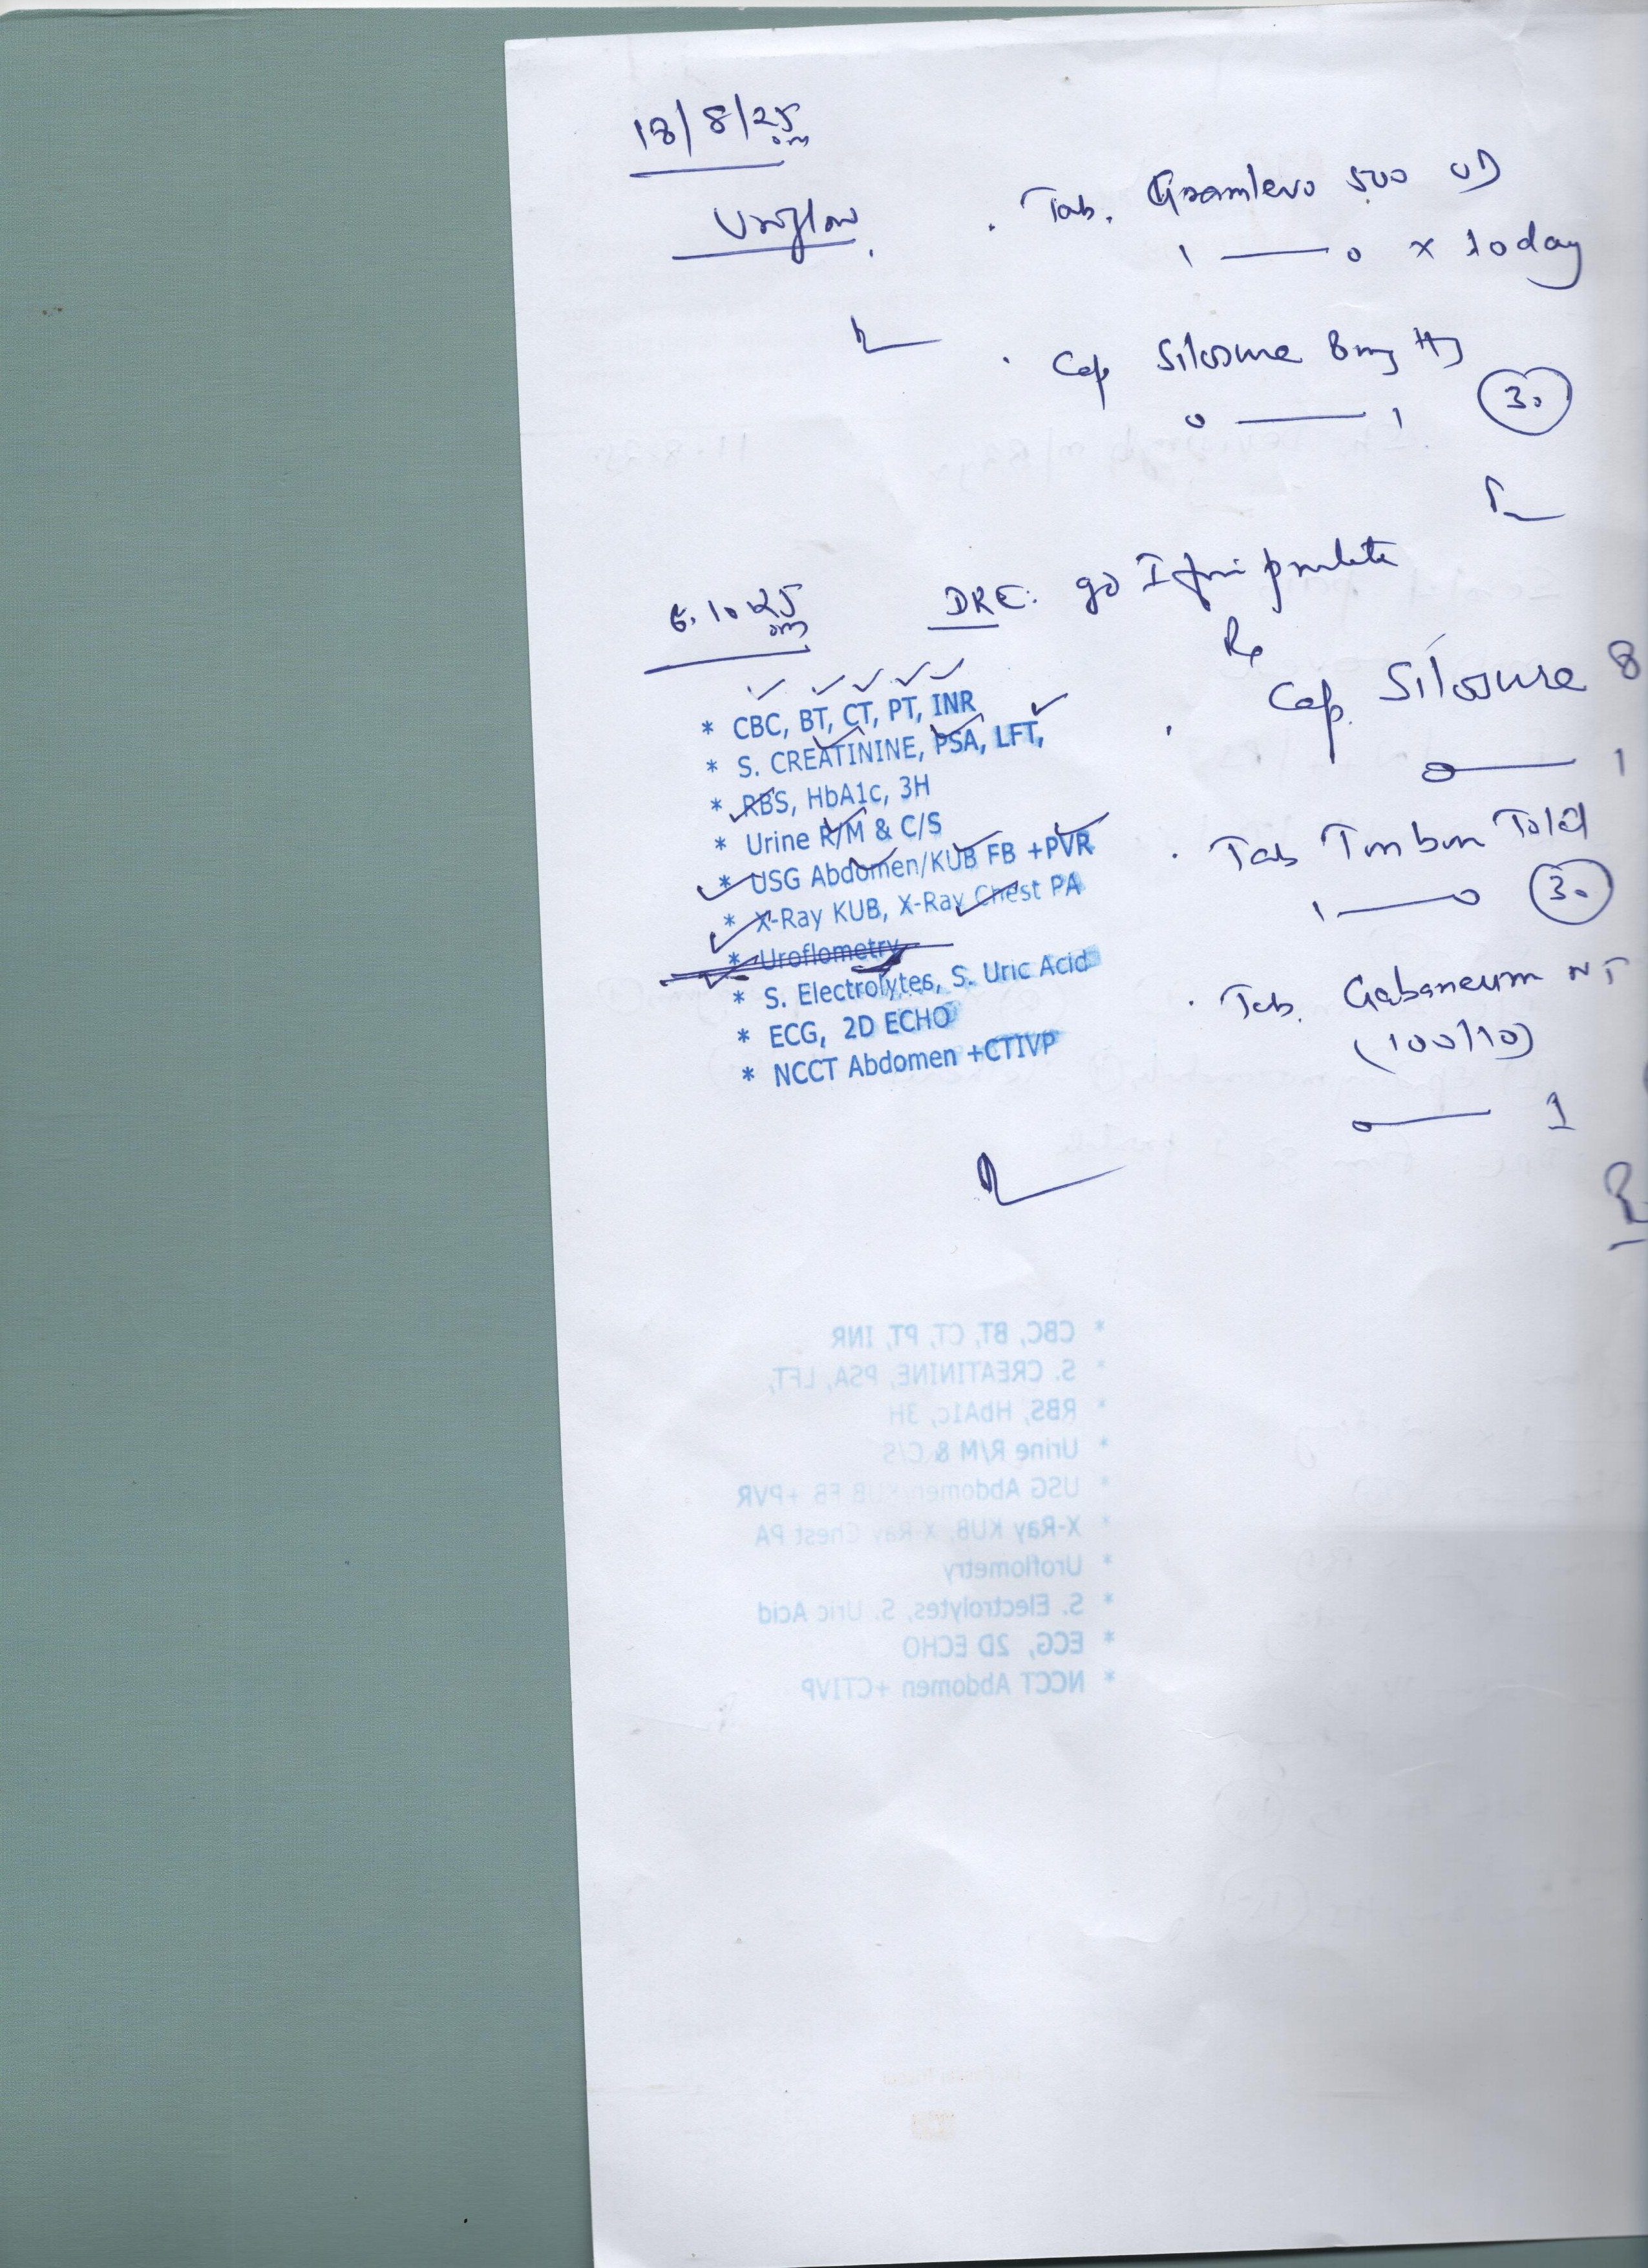 18/8/25
Uroflow.
. Tab. Gramlevo 500 OD
1 — 0 x 10 day
. Cap Silosure 8mg HS
0 — 1 30
6.10.25
DRE: go I firm prostate
Rx
. Cap. Silosure 8
0 — 1
* CBC, BT, CT, PT, INR
* S. CREATININE, PSA, LFT,
* RBS, HbA1c, 3H
* Urine R/M & C/S
* USG Abdomen/KUB FB +PVR
* X-Ray KUB, X-Ray Chest PA
* Uroflometry
* S. Electrolytes, S. Uric Acid
* ECG, 2D ECHO
* NCCT Abdomen +CTIVP
. Tab
1 — 0 30
. Tab. Gabaneum NT
(100/10)
0 — 1
* CBC, BT, CT, PT, INR
* S. CREATININE, PSA, LFT,
* RBS, HbA1c, 3H
* Urine R/M & C/S
* USG Abdomen/KUB FB +PVR
* X-Ray KUB, X-Ray Chest PA
* Uroflometry
* S. Electrolytes, S. Uric Acid
* ECG, 2D ECHO
* NCCT Abdomen +CTIVP